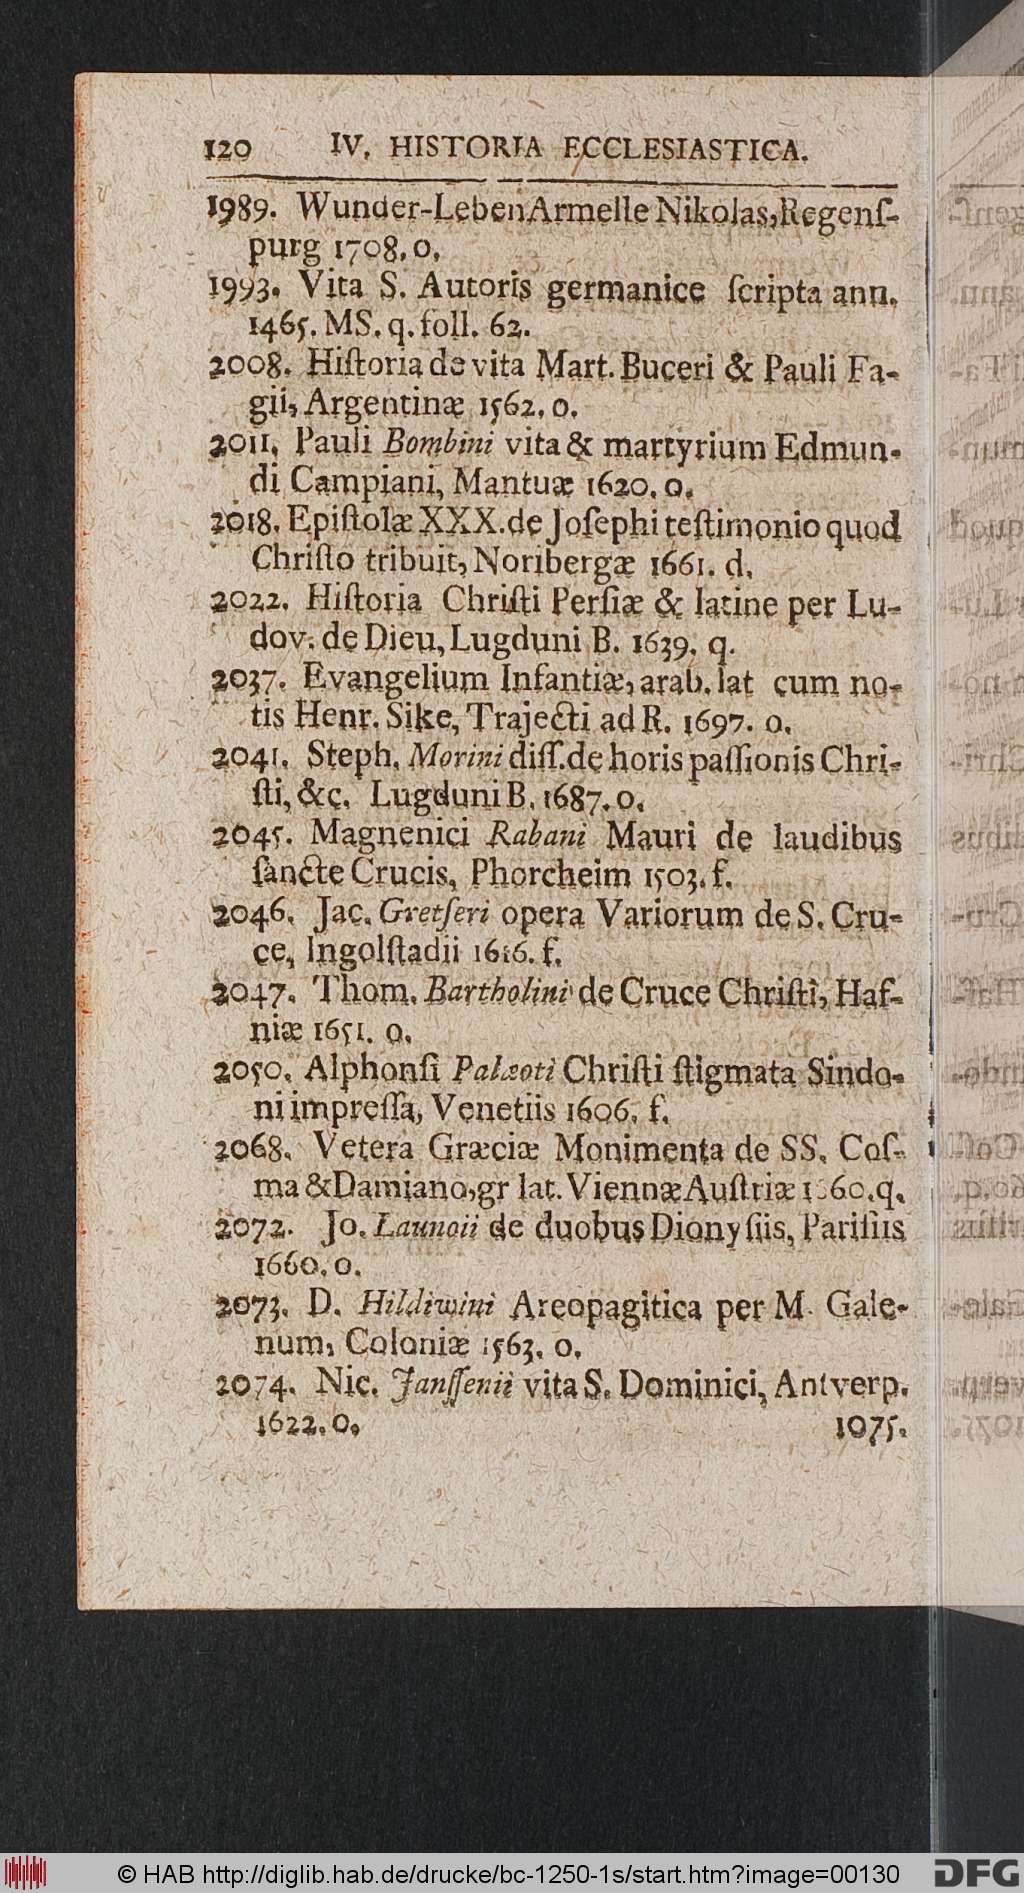 120 IV. HISTORIA ECCLESIASTICA.
1989. Wunder-Leben Armelle Nikolas, Regenſ-
purg 1708. o.
1993. Vita S. Autoris germanice ſcripta ann.
1465. MS. q. foll. 62.
2008. Hiſtoria de vita Mart. Buceri & Pauli Fa-
gii, Argentinæ 1562. o.
2011. Pauli Bombini vita & martyrium Edmun-
di Campiani, Mantuæ 1620. o.
2018. Epiſtolæ XXX. de Joſephi teſtimonio quod
Chriſto tribuit, Noribergæ 1661. d.
2022. Hiſtoria Chriſti Perſiæ & latine per Lu-
dov. de Dieu, Lugduni B. 1639. q.
2037. Evangelium Infantiæ, arab. lat cum no-
tis Henr. Sike, Trajecti ad R. 1697. o.
2041. Steph. Morini diſſ. de horis paſſionis Chri-
ſti, &c. Lugduni B. 1687. o.
2045. Magnenici Rabani Mauri de laudibus
ſancte Crucis, Phorcheim 1503. f.
2046. Jac. Gretſeri opera Variorum de S. Cru-
ce, Ingolſtadii 1616. f.
2047. Thom. Bartholini de Cruce Chriſti, Haf-
niæ 1651. o.
2050. Alphonſi Palæoti Chriſti ſtigmata Sindo-
ni impreſſa, Venetiis 1606. f.
2068. Vetera Græciæ Monimenta de SS. Coſ-
ma & Damiano, gr lat. Viennæ Auſtriæ 1660. q.
2072. Jo. Launoii de duobus Dionyſiis, Pariſiis
1660. o.
2073. D. Hildiwini Areopagitica per M. Gale-
num, Coloniæ 1563. o.
2074. Nic. Janſſenii vita S. Dominici, Antverp.
1622. o. 1075.
© HAB http://diglib.hab.de/drucke/bc-1250-1s/start.htm?image=00130 DFG